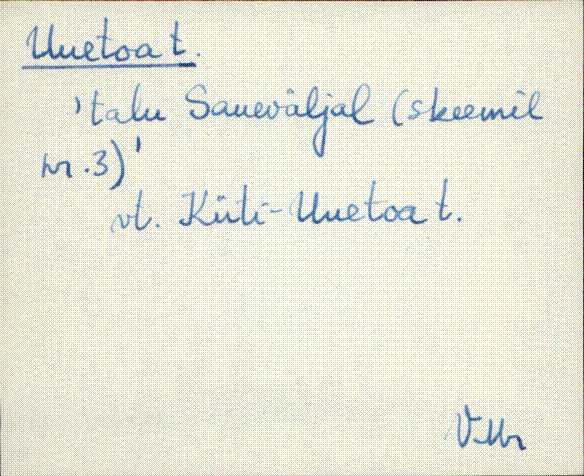 Uuetoa t.
'talu Saueväljal (skeemil
nr. 3)'
vt. Küti-Uuetoa t.
VMr